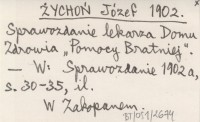 ŻYCHOŃ Józef 1902.
Sprawozdanie lekarza Domu
Zdrowia „Pomocy Bratniej".
— W: Sprawozdanie 1902 a,
s. 30-35, il.
W Zakopanem